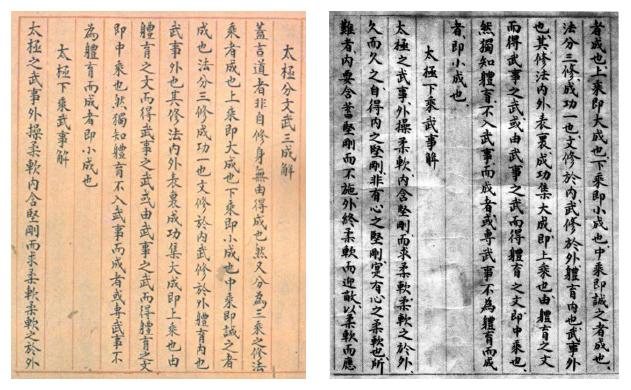 太極分文武三成解
蓋言道者非自修身無由得成也然又分為三乘之修法
乘者成也上乘即大成也下乘即小成也中乘即誠之者
成也法分三修成功一也文修於內武修於外體育內也
武事外也其修法內外表裏成功集大成即上乘也由
體育之文而得武事之武或由武事之武而得體育之文
即中乘也然獨知體育不入武事而成者或專武事不
為體育而成者即小成也
太極下乘武事解
太極之武事外操柔軟內含堅剛而求柔軟柔軟之於外
者成也上乘即大成也下乘即小成也中乘即誠之者成也
法分三修成功一也文修於內武修於外體育內也武事外
也其修法內外表裏成功集大成即上乘也由體育之文
而得武事之武或由武事之武而得體育之文即中乘也
然獨知體育不入武事而成者或專武事不為體育而成
者即小成也
太極下乘武事解
太極之武事外操柔軟內含堅剛而求柔軟柔軟之於外
久而久之自得內之堅剛非有心之堅剛實有心之柔軟也所
難者內要含蓄堅剛而不施外終柔軟而迎敵以柔軟而應